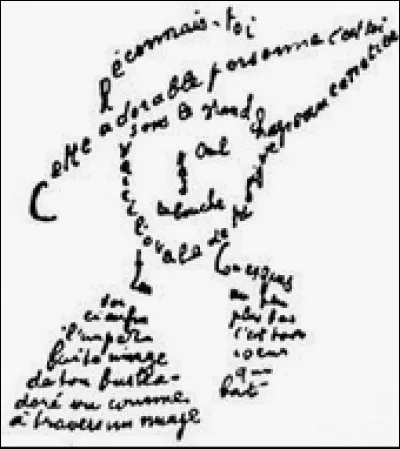 Reconnais-toi
Cette adorable personne c'est toi
sous le grand chapeau canotier
Oeil
Nez
la bouche
Voici l'ovale de ta figure
Ton
cou exquis
Voi
ci enfin
l'impar
faite image
de ton buste a-
doré vu comme
à travers un nuage
un peu
plus bas
c'est ton
coeur
qui
bat